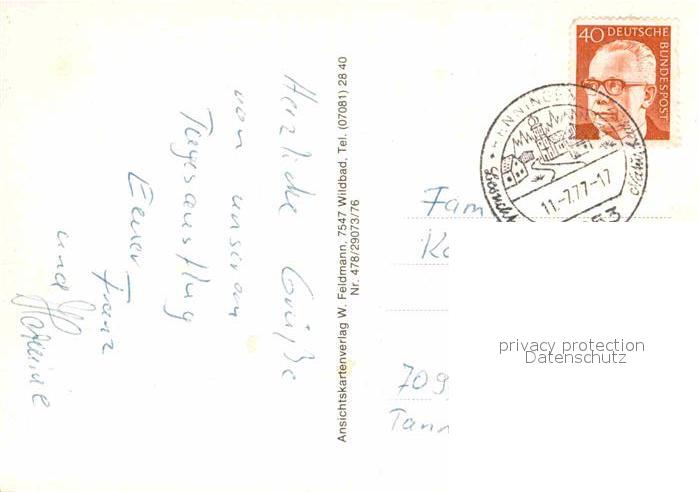 Herzliche Grüße
von unserem
Tagesausflug
Euer Franz
und
Ansichtskartenverlag W. Feldmann, 7547 Wildbad, Tel. (07081) 28 40
Nr. 478/29073/76
40 DEUTSCHE
BUNDESPOST
11.-7.77-17
Fam
Ko
709
Tann
privacy protection
Datenschutz